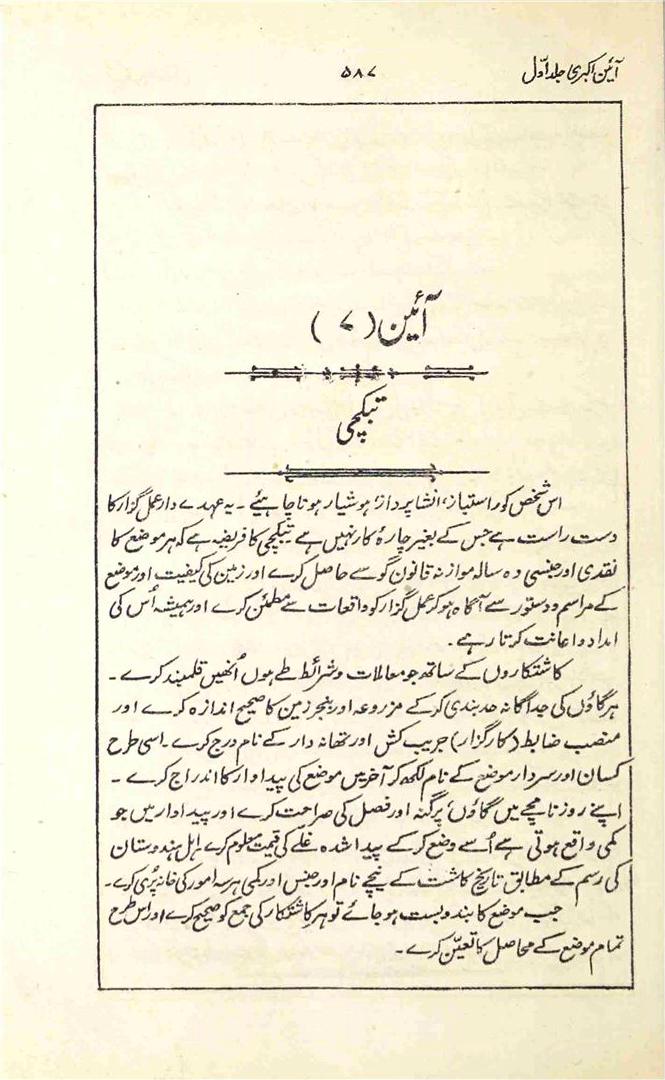 آئین اکبری جلد اوّل
۵۸۷
آئین (۷)
تبکچی
اس شخص کو راستباز، انشا پرداز، ہوشیار ہونا چاہیئے ۔ یہ عہدے دار عمل گزار کا
دست راست ہے جس کے بغیر چارۂ کار نہیں ہے تبکچی کا فریضہ ہے کہ ہر موضع کا
نقدی اور جنسی دہ سالہ موازنہ قانون گو سے حاصل کرے اور زمین کی کیفیت اور موضع
کے مراسم و دستور سے آگاہ ہو کر عمل گزار کو واقعات سے مطمئن کرے اور ہمیشہ اُس کی
امداد و اعانت کرتا رہے ۔
کاشتکاروں کے ساتھ جو معاملات و شرائط طے ہوں اُنھیں قلمبند کرے ۔
ہر گاؤں کی جداگانہ حد بندی کر کے مزروعہ اور بنجر زمین کا صحیح اندازہ کرے اور
منصب ضابط (کارگزار) جریب کش اور تھانہ دار کے نام درج کرے ۔ اسی طرح
کسان اور سردار موضع کے نام لکھ کر آخر میں موضع کی پیداوار کا اندراج کرے ۔
اپنے روزنامچے میں گاؤں، پرگنہ اور فصل کی صراحت کرے اور پیداوار میں جو
کمی واقع ہوتی ہے اُسے وضع کر کے پیدا شدہ غلّے کی قیمت معلوم کرے، اہل ہندوستان
کی رسم کے مطابق تاریخ کاشت کے نیچے نام اور جنس اور کمی ہر سہ امور کی خانہ پُری کرے۔
جب موضع کا بندوبست ہو جائے تو ہر کاشتکار کی جمع کو صحیح کرے اور اس طرح
تمام موضع کے محاصل کا تعیّن کرے ۔